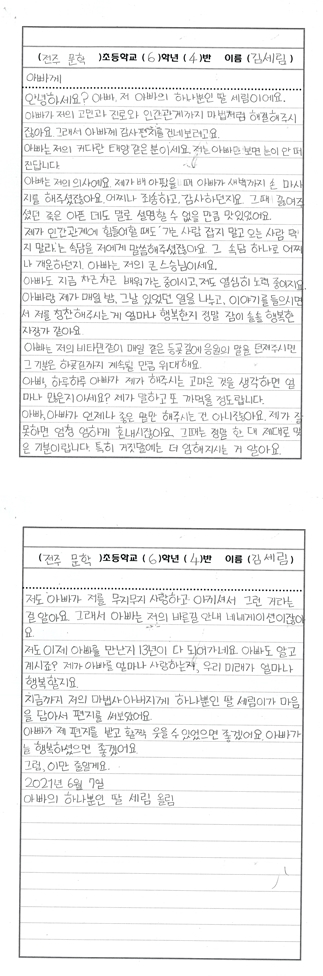 (전주 문학)초등학교 (6)학년 (4)반 이름 (김세림)
아빠께
안녕하세요? 아빠, 저 아빠의 하나뿐인 딸 세림이에요.
아빠가 저의 고민과 진로와 인간관계까지 마법처럼 해결해주시
잖아요. 그래서 아빠께 감사편지를 건네보려고요.
아빠는 저의 커다란 태양 같은 분이세요. 저는 아빠만 보면 눈이 안 떠
진답니다.
아빠는 저의 의사에요. 제가 배 아팠을 때 아빠가 새벽까지 손 마사
지를 해주셨잖아요. 어찌나 죄송하고, 감사하던지요. 그때 끓여주
셨던 죽은 아픈 데도 말로 설명할 수 없을 만큼 맛있었어요.
제가 인간관계에 힘들어할 때도 '가는 사람 잡지 말고 오는 사람 막
지 말라'는 속담을 저에게 말씀해주셨잖아요. 그 속담 하나로 어찌
나 개운하던지. 아빠는 저의 큰 스승님이세요.
아빠도 지금 차근차근 배워가는 중이시고, 저도 열심히 노력 중이지요.
아빠랑 제가 매일 밤, 그날 있었던 일을 나누고, 이야기를 들으시면
서 저를 칭찬해주시는 게 얼마나 행복한지 정말 잠이 솔솔 행복한
자장가 같아요.
아빠는 저의 비타민같이 매일 같은 등굣길에 응원의 말을 던져주시면
그 기분은 하굣길까지 계속될 만큼 위대해요.
아빠, 하루하루 아빠가 제가 해주시는 고마운 것을 생각하면 얼
마나 많은지 아세요? 제가 말하고 또 까먹을 정도랍니다.
아빠, 아빠가 언제나 좋은 말만 해주시는 건 아니잖아요. 제가 잘
못하면 엄청 엄하게 혼내시잖아요. 그때는 정말 한 대 제대로 맞
은 기분이랍니다. 특히 거짓말에는 더 엄해지시는 거 알아요.
(전주 문학)초등학교 (6)학년 (4)반 이름 (김세림)
저도 아빠가 저를 무지무지 사랑하고 아끼셔서 그런 거라는
걸 알아요. 그래서 아빠는 저의 바른길 안내 네비게이션이잖아
요.
저도 이제 아빠를 만난지 13년이 다 되어가네요. 아빠도 알고
계시죠? 제가 아빠를 얼마나 사랑하는지, 우리 미래가 얼마나
행복할지요.
지금까지 저의 마법사 아버지께 하나뿐인 딸 세림이가 마음
을 담아서 편지를 써보았어요.
아빠가 제 편지를 받고 활짝 웃을 수 있었으면 좋겠어요. 아빠가
늘 행복하셨으면 좋겠어요.
그럼, 이만 줄일게요.
2021년 6월 7일
아빠의 하나뿐인 딸 세림 올림